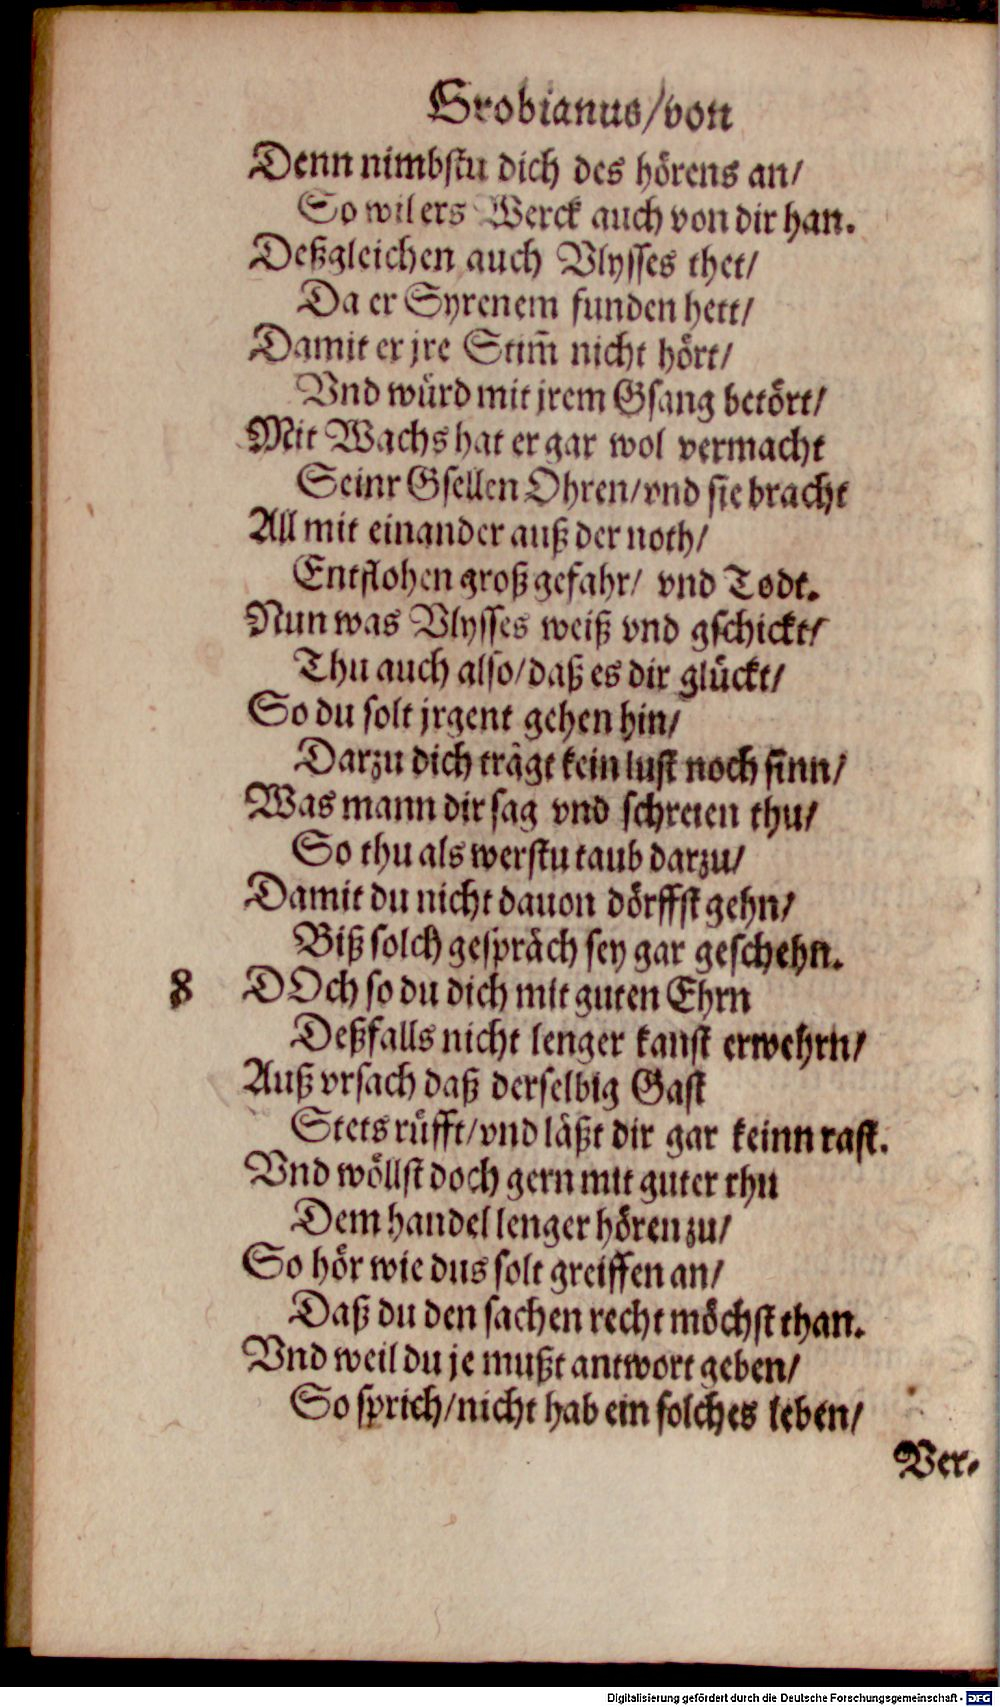 Grobianus/von
Denn nimbstu dich des hörens an/
So wil ers Werck auch von dir han.
Deßgleichen auch Vlysses thet/
Da er Syrenem funden hett/
Damit er jre Stim̃ nicht hört/
Vnd würd mit jrem Gsang betört/
Mit Wachs hat er gar wol vermacht
Seinr Gsellen Ohren/vnd sie bracht
All mit einander auß der noth/
Entflohen groß gefahr/ vnd Todt.
Nun was Vlysses weiß vnd gschickt/
Thu auch also/daß es dir glückt/
So du solt jrgent gehen hin/
Darzu dich trägt kein lust noch sinn/
Was mann dir sag vnd schreien thu/
So thu als werstu taub darzu/
Damit du nicht dauon dörffst gehn/
Biß solch gespräch sey gar geschehn.
8 DOch so du dich mit guten Ehrn
Deßfalls nicht lenger kanst erwehrn/
Auß vrsach daß derselbig Gast
Stets rüfft/vnd läßt dir gar keinn rast.
Vnd wöllst doch gern mit guter rhu
Dem handel lenger hören zu/
So hör wie dus solt greiffen an/
Daß du den sachen recht möchst than.
Vnd weil du je mußt antwort geben/
So sprich/nicht hab ein solches leben/
Ver-
Digitalisierung gefördert durch die Deutsche Forschungsgemeinschaft - DFG